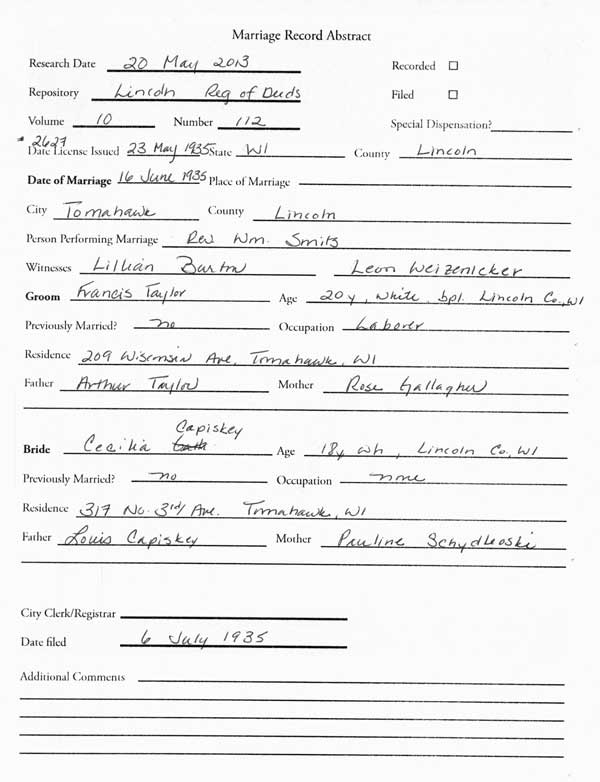 Marriage Record Abstract
Research Date 20 May 2013 Recorded ☐
Repository Lincoln Reg of Deeds Filed ☐
Volume 10 Number 112 Special Dispensation?
# 2627
Date License Issued 23 May 1935 State WI County Lincoln
Date of Marriage 16 June 1935 Place of Marriage
City Tomahawk County Lincoln
Person Performing Marriage Rev Wm. Smits
Witnesses Lillian Barton Leon Weizenicker
Groom Francis Taylor Age 20y, White, bpl. Lincoln Co, WI
Previously Married? no Occupation Laborer
Residence 209 Wisconsin Ave, Tomahawk, WI
Father Arthur Taylor Mother Rose Gallagher
Capiskey
Bride Cecilia Age 18y wh, Lincoln Co, WI
Previously Married? no Occupation none
Residence 317 No. 3rd Ave. Tomahawk, WI
Father Louis Capiskey Mother Pauline Schydleoski
City Clerk/Registrar
Date filed 6 July 1935
Additional Comments